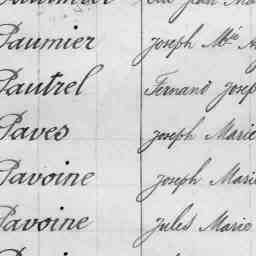 Paumier Joseph Mie
Pautrel Fernand Josep
Paves Joseph Marie
Pavoine Joseph Marie
Pavoine Jules Marie